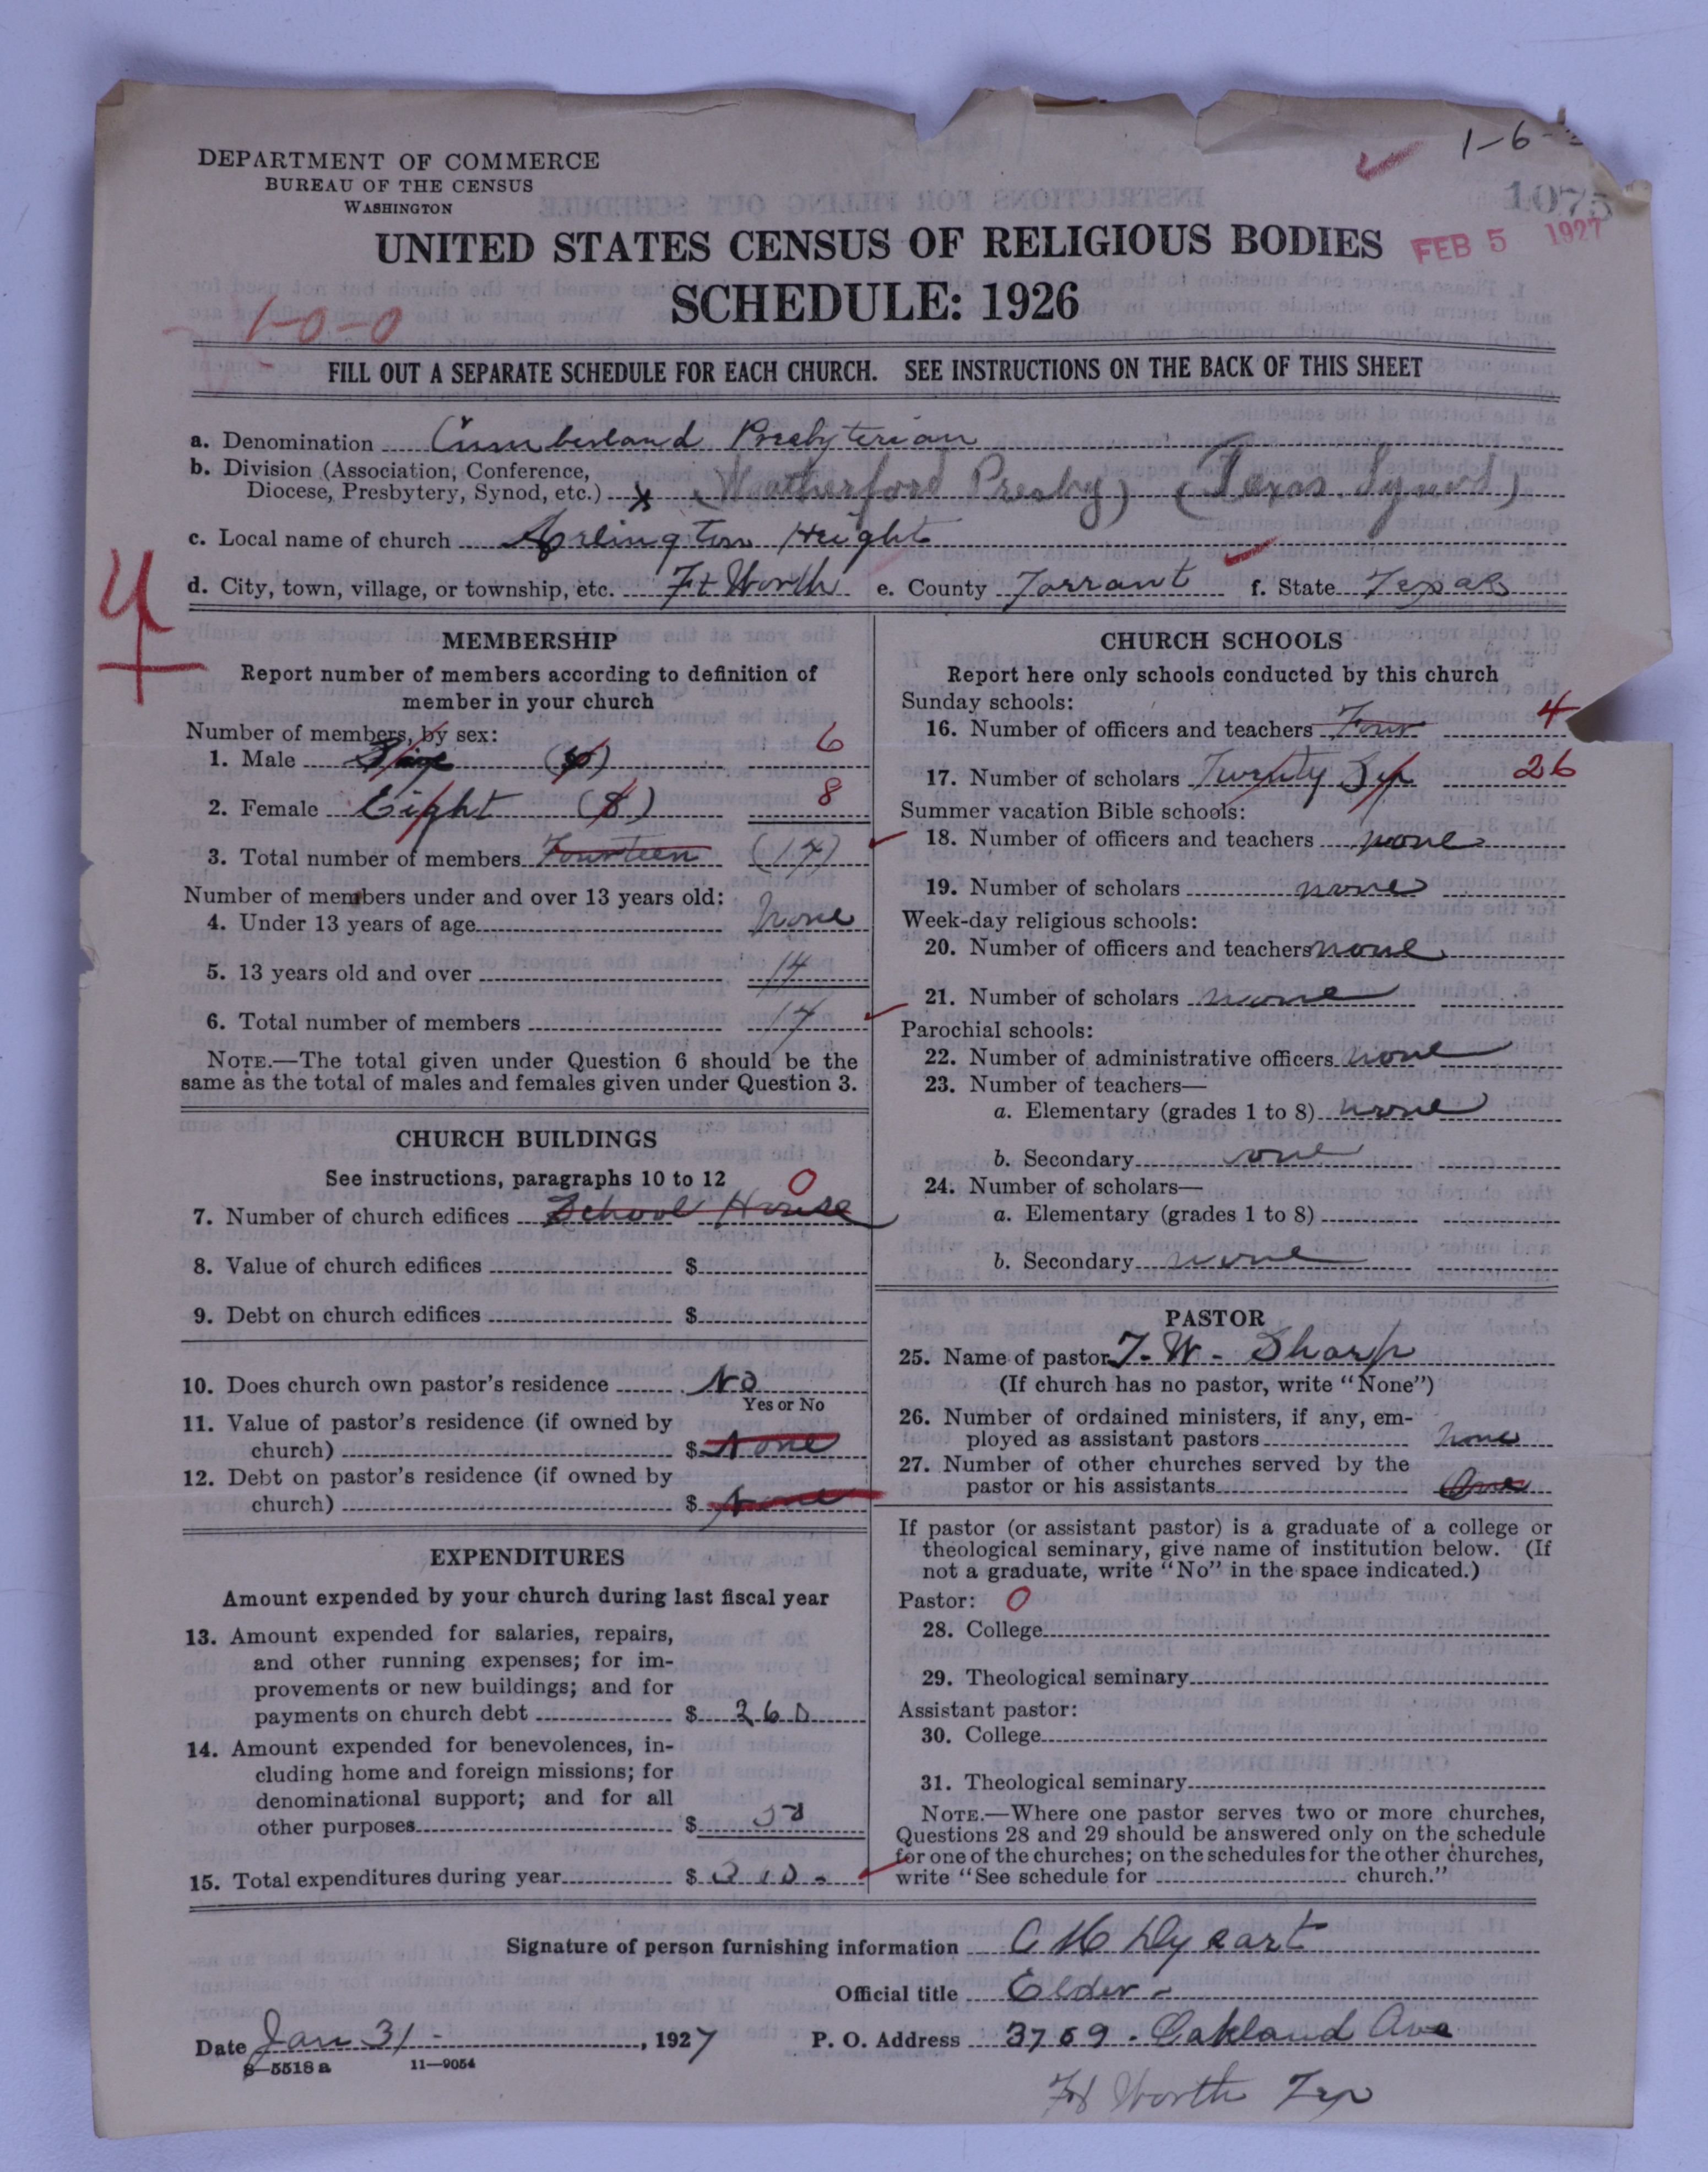 1-6-
1075
FEB 5 1927
DEPARTMENT OF COMMERCE
BUREAU OF THE CENSUS
WASHINGTON
UNITED STATES CENSUS OF RELIGIOUS BODIES
SCHEDULE: 1926
1-0-0
FILL OUT A SEPARATE SCHEDULE FOR EACH CHURCH. SEE INSTRUCTIONS ON THE BACK OF THIS SHEET
a. Denomination Cumberland Presbyterian
b. Division (Association, Conference,
Diocese, Presbytery, Synod, etc.) x (Weatherford Presby) (Texas Synod)
c. Local name of church Arlington Height
d. City, town, village, or township, etc. Ft Worth e. County Tarrant f. State Texas
4
MEMBERSHIP
Report number of members according to definition of
member in your church
Number of members, by sex:
1. Male 6
2. Female Eight (8) 8
3. Total number of members Fourteen (14)
Number of members under and over 13 years old:
4. Under 13 years of age None
5. 13 years old and over 14
6. Total number of members 14
NOTE.—The total given under Question 6 should be the
same as the total of males and females given under Question 3.
CHURCH BUILDINGS
See instructions, paragraphs 10 to 12 0
7. Number of church edifices School House
8. Value of church edifices $
9. Debt on church edifices $
10. Does church own pastor's residence No
Yes or No
11. Value of pastor's residence (if owned by
church) $ None
12. Debt on pastor's residence (if owned by
church) $ None
EXPENDITURES
Amount expended by your church during last fiscal year
13. Amount expended for salaries, repairs,
and other running expenses; for im-
provements or new buildings; and for
payments on church debt $ 260
14. Amount expended for benevolences, in-
cluding home and foreign missions; for
denominational support; and for all
other purposes $ 50
15. Total expenditures during year $ 310-
CHURCH SCHOOLS
Report here only schools conducted by this church
Sunday schools:
16. Number of officers and teachers Four 4
17. Number of scholars Twenty Six 26
Summer vacation Bible schools:
18. Number of officers and teachers none
19. Number of scholars none
Week-day religious schools:
20. Number of officers and teachers none
21. Number of scholars none
Parochial schools:
22. Number of administrative officers none
23. Number of teachers—
a. Elementary (grades 1 to 8) none
b. Secondary none
24. Number of scholars—
a. Elementary (grades 1 to 8)
b. Secondary none
PASTOR
25. Name of pastor T. W. Sharp
(If church has no pastor, write "None")
26. Number of ordained ministers, if any, em-
ployed as assistant pastors None
27. Number of other churches served by the
pastor or his assistants One
If pastor (or assistant pastor) is a graduate of a college or
theological seminary, give name of institution below. (If
not a graduate, write "No" in the space indicated.)
Pastor: 0
28. College
29. Theological seminary
Assistant pastor:
30. College
31. Theological seminary
NOTE.—Where one pastor serves two or more churches,
Questions 28 and 29 should be answered only on the schedule
for one of the churches; on the schedules for the other churches,
write "See schedule for church."
Signature of person furnishing information C M Dysart
Official title Elder-
Date Jan 31-, 1927 P. O. Address 3709. Oakland Ave
8-5518a 11-9054
Ft Worth Tex